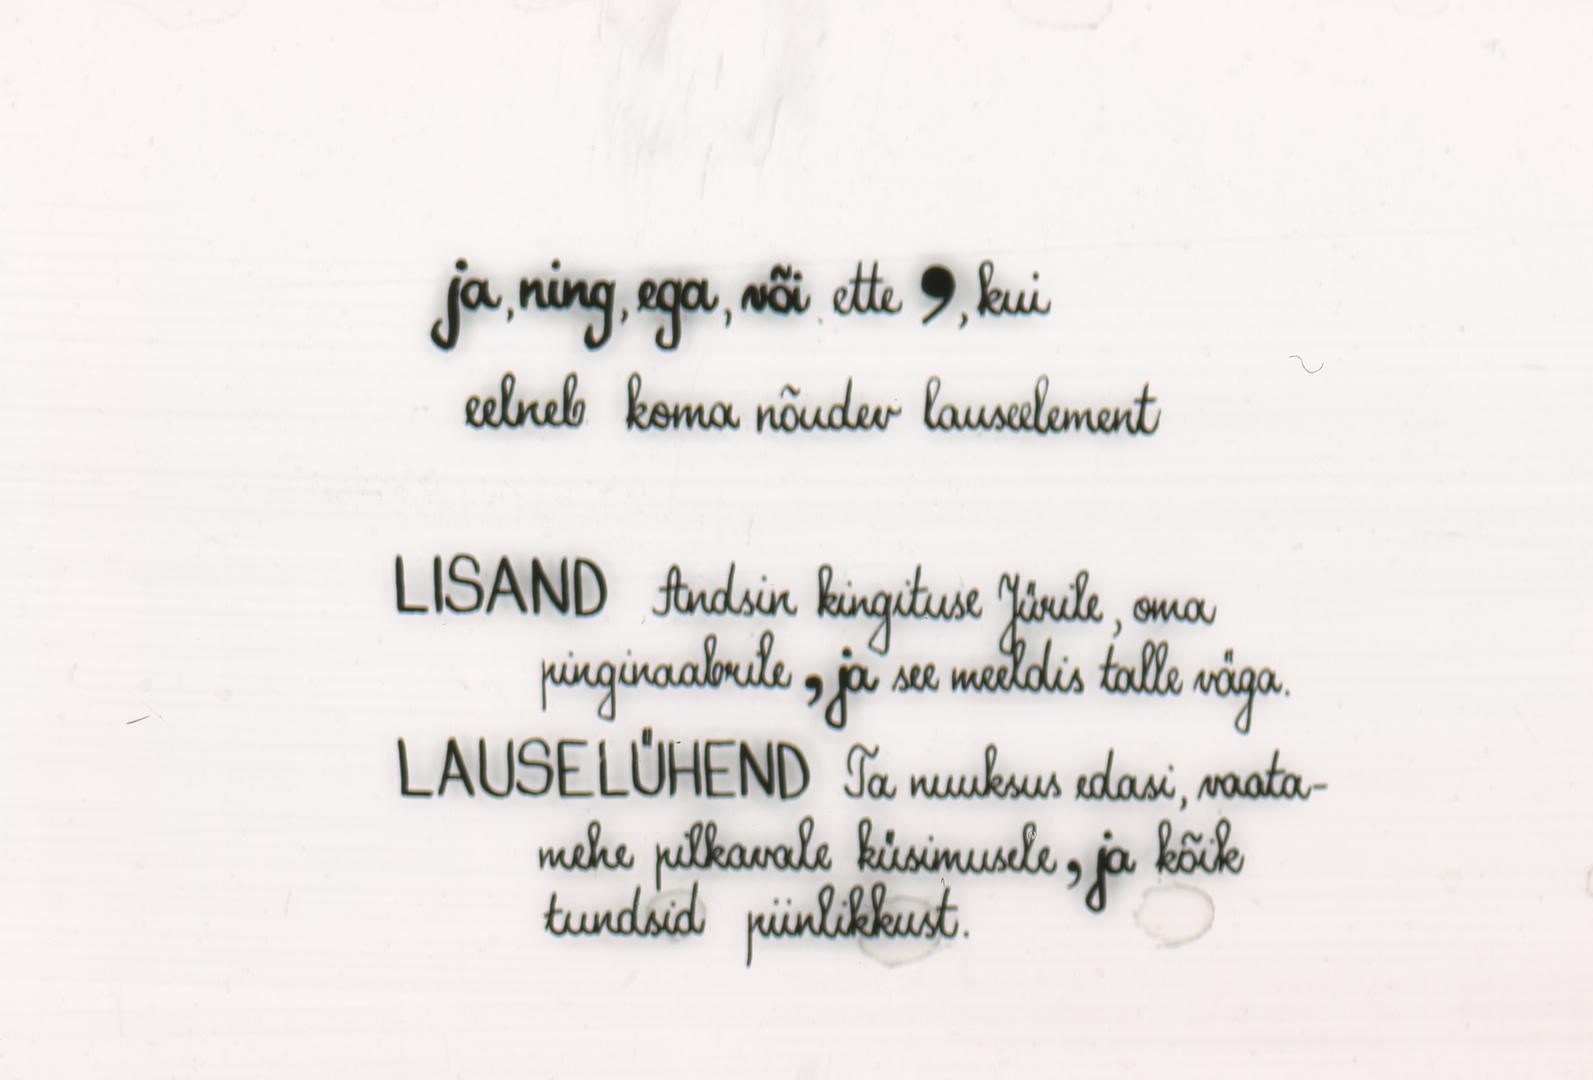 ja, ning, ega, või ette , , kui
eelneb koma nõudev lauseelement
LISAND Andsin kingituse Jürile, oma
pinginaabrile, ja see meeldis talle väga.
LAUSELÜHEND Ta nuuksus edasi, vaata-
mehe pilkavale küsimusele, ja kõik
tundsid piinlikkust.